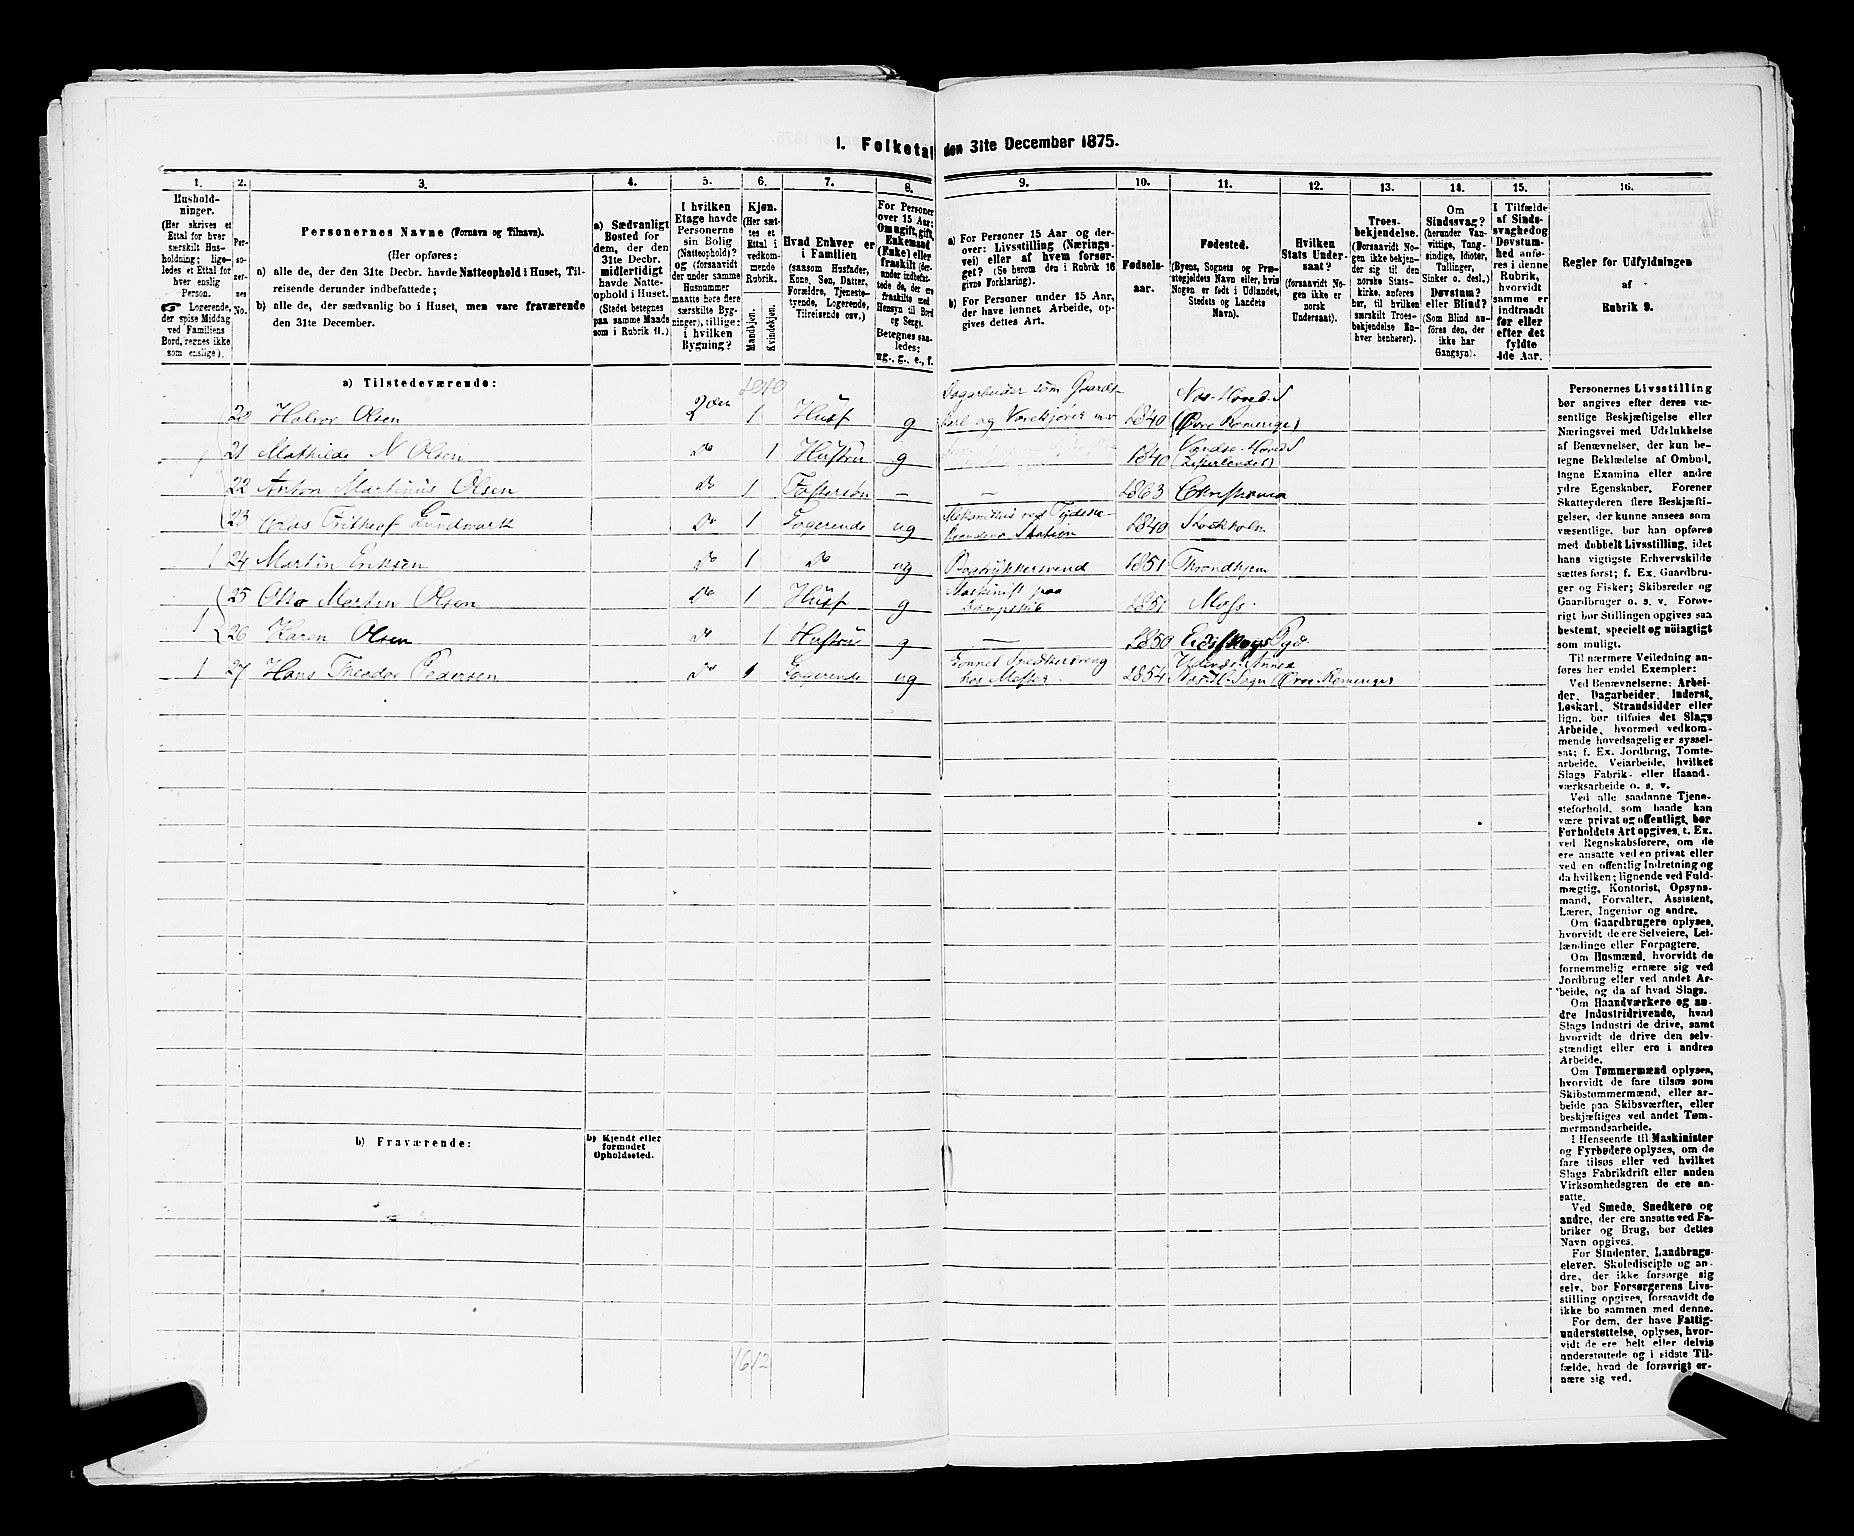 1. Folketal den 31te December 1875.
1. 2. 3. 4. 5. 6. 7. 8. 9. 10. 11. 12. 13. 14. 15. 16.
Hushold-
ninger.
(Her skrives et
Ettal for hver
særskilt Hus-
holdning; lige-
ledes et Ettal for
hver enslig
Person.
☞ Logerende,
der spise Middag
ved Familiens
Bord, regnes ikke
som enslige).
Per-
so-
ner-
nes
No.
Personernes Navne (Fornavn og Tilnavn).
(Her opføres:
a) alle de, der den 31te Decbr. havde Natteophold i Huset, Til-
reisende derunder indbefattede;
b) alle de, der sædvanlig bo i Huset, men vare fraværende
den 31te December.
a) Sædvanligt
Bosted for
dem, der den
31te Decbr.
midlertidigt
havde Natte-
ophold i Huset.
(Stedet betegnes
paa samme Maade
som i Rubrik 11.)
I hvilken
Etage havde
Personerne
sin Bolig
(Natteophold)?
og (forsaavidt
der under samme
Husnummer
maatte høre flere
særskilte Byg-
ninger), tillige:
i hvilken
Bygning?
Kjøn.
(Her sæt-
tes et
Ettal i
vedkom-
mende
Rubrik.
Mandkjøn.
Kvindekjøn.
Hvad Enhver er
i Familien
(saasom Husfader,
Kone, Søn, Datter,
Forældre, Tjeneste-
tyende, Logerende,
Tilreisende osv.)
For Personer
over 15 Aar:
Om ugift, gift,
Enkemand
(Enke) eller
fraskilt (der-
under indbefat-
tede de, der ere
fraskilte med
Hensyn til Bord
og Seng).
Betegnes saa-
ledes:
ug., g., e., f.
a) For Personer 15 Aar og der-
over: Livsstilling (Nærings-
vei) eller af hvem forsør-
get? (Se herom den i Rubrik 16
givne Forklaring).
b) For Personer under 15 Aar,
der have lønnet Arbeide, op-
gives dettes Art.
Fødsels-
aar.
Fødested.
(Byens, Sognets og Præ-
stegjeldets Navn eller, hvis
Nogen er født i Udlandet,
Stedets og Landets
Navn).
Hvilken
Stats Under-
saat?
(forsaavidt No-
gen ikke er
norsk
Undersaat).
Troes-
bekjendelse.
(Forsaavidt No-
gen ikke bekjen-
der sig til den
norske Stats-
kirke, anføres
her, til hvilken
særskilt Troes-
bekjendelse En-
hver henhører).
Om
Sindssvag?
(herunder Van-
vittige, Tung-
sindige, Idioter,
Tullinger,
Sinker o. desl.)
Døvstum?
eller Blind?
(Som Blind an-
føres den, der
ikke har
Gangsyn).
I Tilfælde
af Sinds-
svaghed og
Døvstum-
hed anfø-
res i denne
Rubrik,
hvorvidt
samme er
indtraadt
før eller
efter det
fyldte
4de Aar.
Regler for Udfyldningen
af
Rubrik 9.
a) Tilstedeværende:
20 Halvor Olsen 2den 1 Husf g 1840 (Øvre Romerige)
21 Mathilde N Olsen Do 1 Hustru g 1840
22 Anton Martinus Olsen Do 1 Fostersøn — — 1863 Christiania
23 Fritheof Lundmark Do 1 Logerende ug 1840 Stockholm
1 24 Martin Eriksen Do 1 Do ug Bogtrykkersvend 1851 Throndhjem
25 Otto Morten Olsen Do 1 Husf g Maskinist paa
Dampskib 1851 Moss.
1 26 Karen Olsen Do 1 Hustru g — 1850
1 27 Hans Theodor Pedersen Do 1 Logerende ug
hos Mester. 1854
b) Fraværende:
b) Kjendt eller
formodet
Opholdssted.
1612
Personernes Livsstilling
bør angives efter deres væ-
sentlige Beskjæftigelse eller
Næringsvei med Udelukkelse
af Benævnelser, der kun be-
tegne Beklædelse af Ombud,
tagne Examina eller andre
ydre Egenskaber. Forener
Skatteyderen flere Beskjæfti-
gelser, der kunne ansees som
væsentlige, bør han opføres
med dobbelt Livsstilling, idet
hans vigtigste Erhvervskilde
sættes først; f. Ex. Gaardbru-
ger og Fisker; Skibsreder og
Gaardbruger o. s. v. Forøv-
rigt bør Stillingen opgives saa
bestemt, specielt og nøiagtigt
som muligt.
Til nærmere Veiledning an-
føres her endel Exempler:
Ved Benævnelserne: Arbei-
der, Dagarbeider, Inderst,
Løskarl, Strandsidder eller
lign. bør tilføies det Slags
Arbeide, hvormed vedkom-
mende hovedsagelig er syssel-
sat; f. Ex. Jordbrug, Tomte-
arbeide, Veiarbeide, hvilket
Slags Fabrik- eller Haand-
værksarbeide o. s. v.
Ved alle saadanne Tjene-
steforhold, som baade kan
være privat og offentligt, bør
Forholdets Art opgives, t. Ex.
ved Regnskabsførere, om de
ere ansatte ved en privat eller
ved en offentlig Indretning og
da hvilken; lignende ved Fuld-
mægtig, Kontorist, Opsyns-
mand, Forvalter, Assistent,
Lærer, Ingeniør og andre.
Om Gaardbrugere oplyses,
hvorvidt de ere Selveiere, Lei-
lændinge eller Forpagtere.
Om Husmænd, hvorvidt de
fornemmelig ernære sig ved
Jordbrug eller ved andet Ar-
beide, og da af hvad Slags.
Om Haandværkere og an-
dre Industridrivende, hvad
Slags Industri de drive, samt
hvorvidt de drive den selv-
stændigt eller ere i andres
Arbeide.
Om Tømmermænd oplyses,
hvorvidt de fare tilsøs som
Skibstømmermænd, eller ar-
beide paa Skibsværfter, eller
beskjæftiges ved andet Tøm-
mermandsarbeide.
I Henseende til Maskinister
og Fyrbødere oplyses, om de
fare tilsøs eller ved hvilket
Slags Fabrikdrift eller anden
Virksomhedsgren de ere an-
satte.
Ved Smede, Snedkere og
andre, der ere ansatte ved Fa-
briker og Brug, bør dettes
Navn opgives.
For Studenter, Landbrugs-
elever, Skoledisciple og an-
dre, der ikke forsørge sig
selv, bør Forsørgerens Livs-
stilling opgives, forsaavidt de
ikke bo sammen med denne.
For dem, der have Fattig-
understøttelse, oplyses, hvor-
vidt de ere helt eller delvis
understøttede og i sidste Til-
fælde, hvad de forøvrigt er-
nære sig ved.